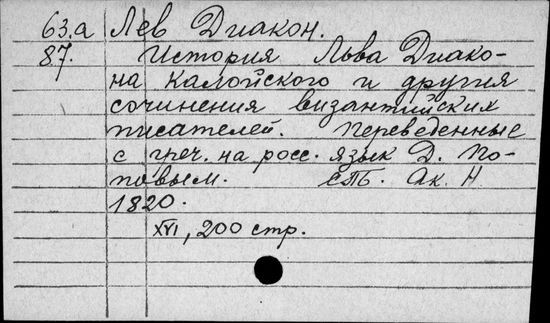 63.а Лев Диакон.
87. История Льва Диако-
на Калойского и другия
сочинения византийских
писателей. Переведенные
с греч. на росс. язык Д. По-
повым. СПБ. Ак. Н
1820.
XVI, 200 стр.